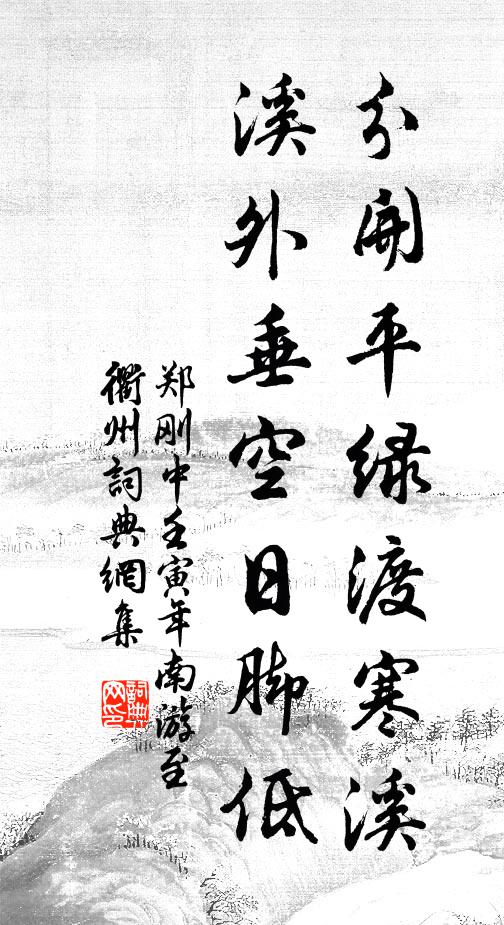 分開平綠渡寒溪
溪外垂空日脚低
郑刚中壬寅年南游至
衢州詞典網集
詞典
文印